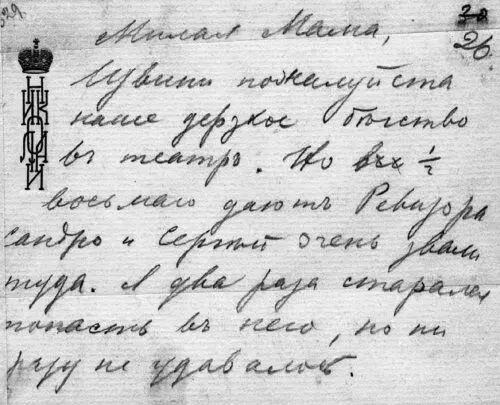 329.
32
26
Милая Мама,
Извини пожалуйста
наше дерзкое бѣгство
въ театръ. Но въ 1/2
восьмаго даютъ Ревизора
сандро и Сергѣй очень звали
туда. Я два раза старался
попасть въ него, но ни
разу не удавалось.